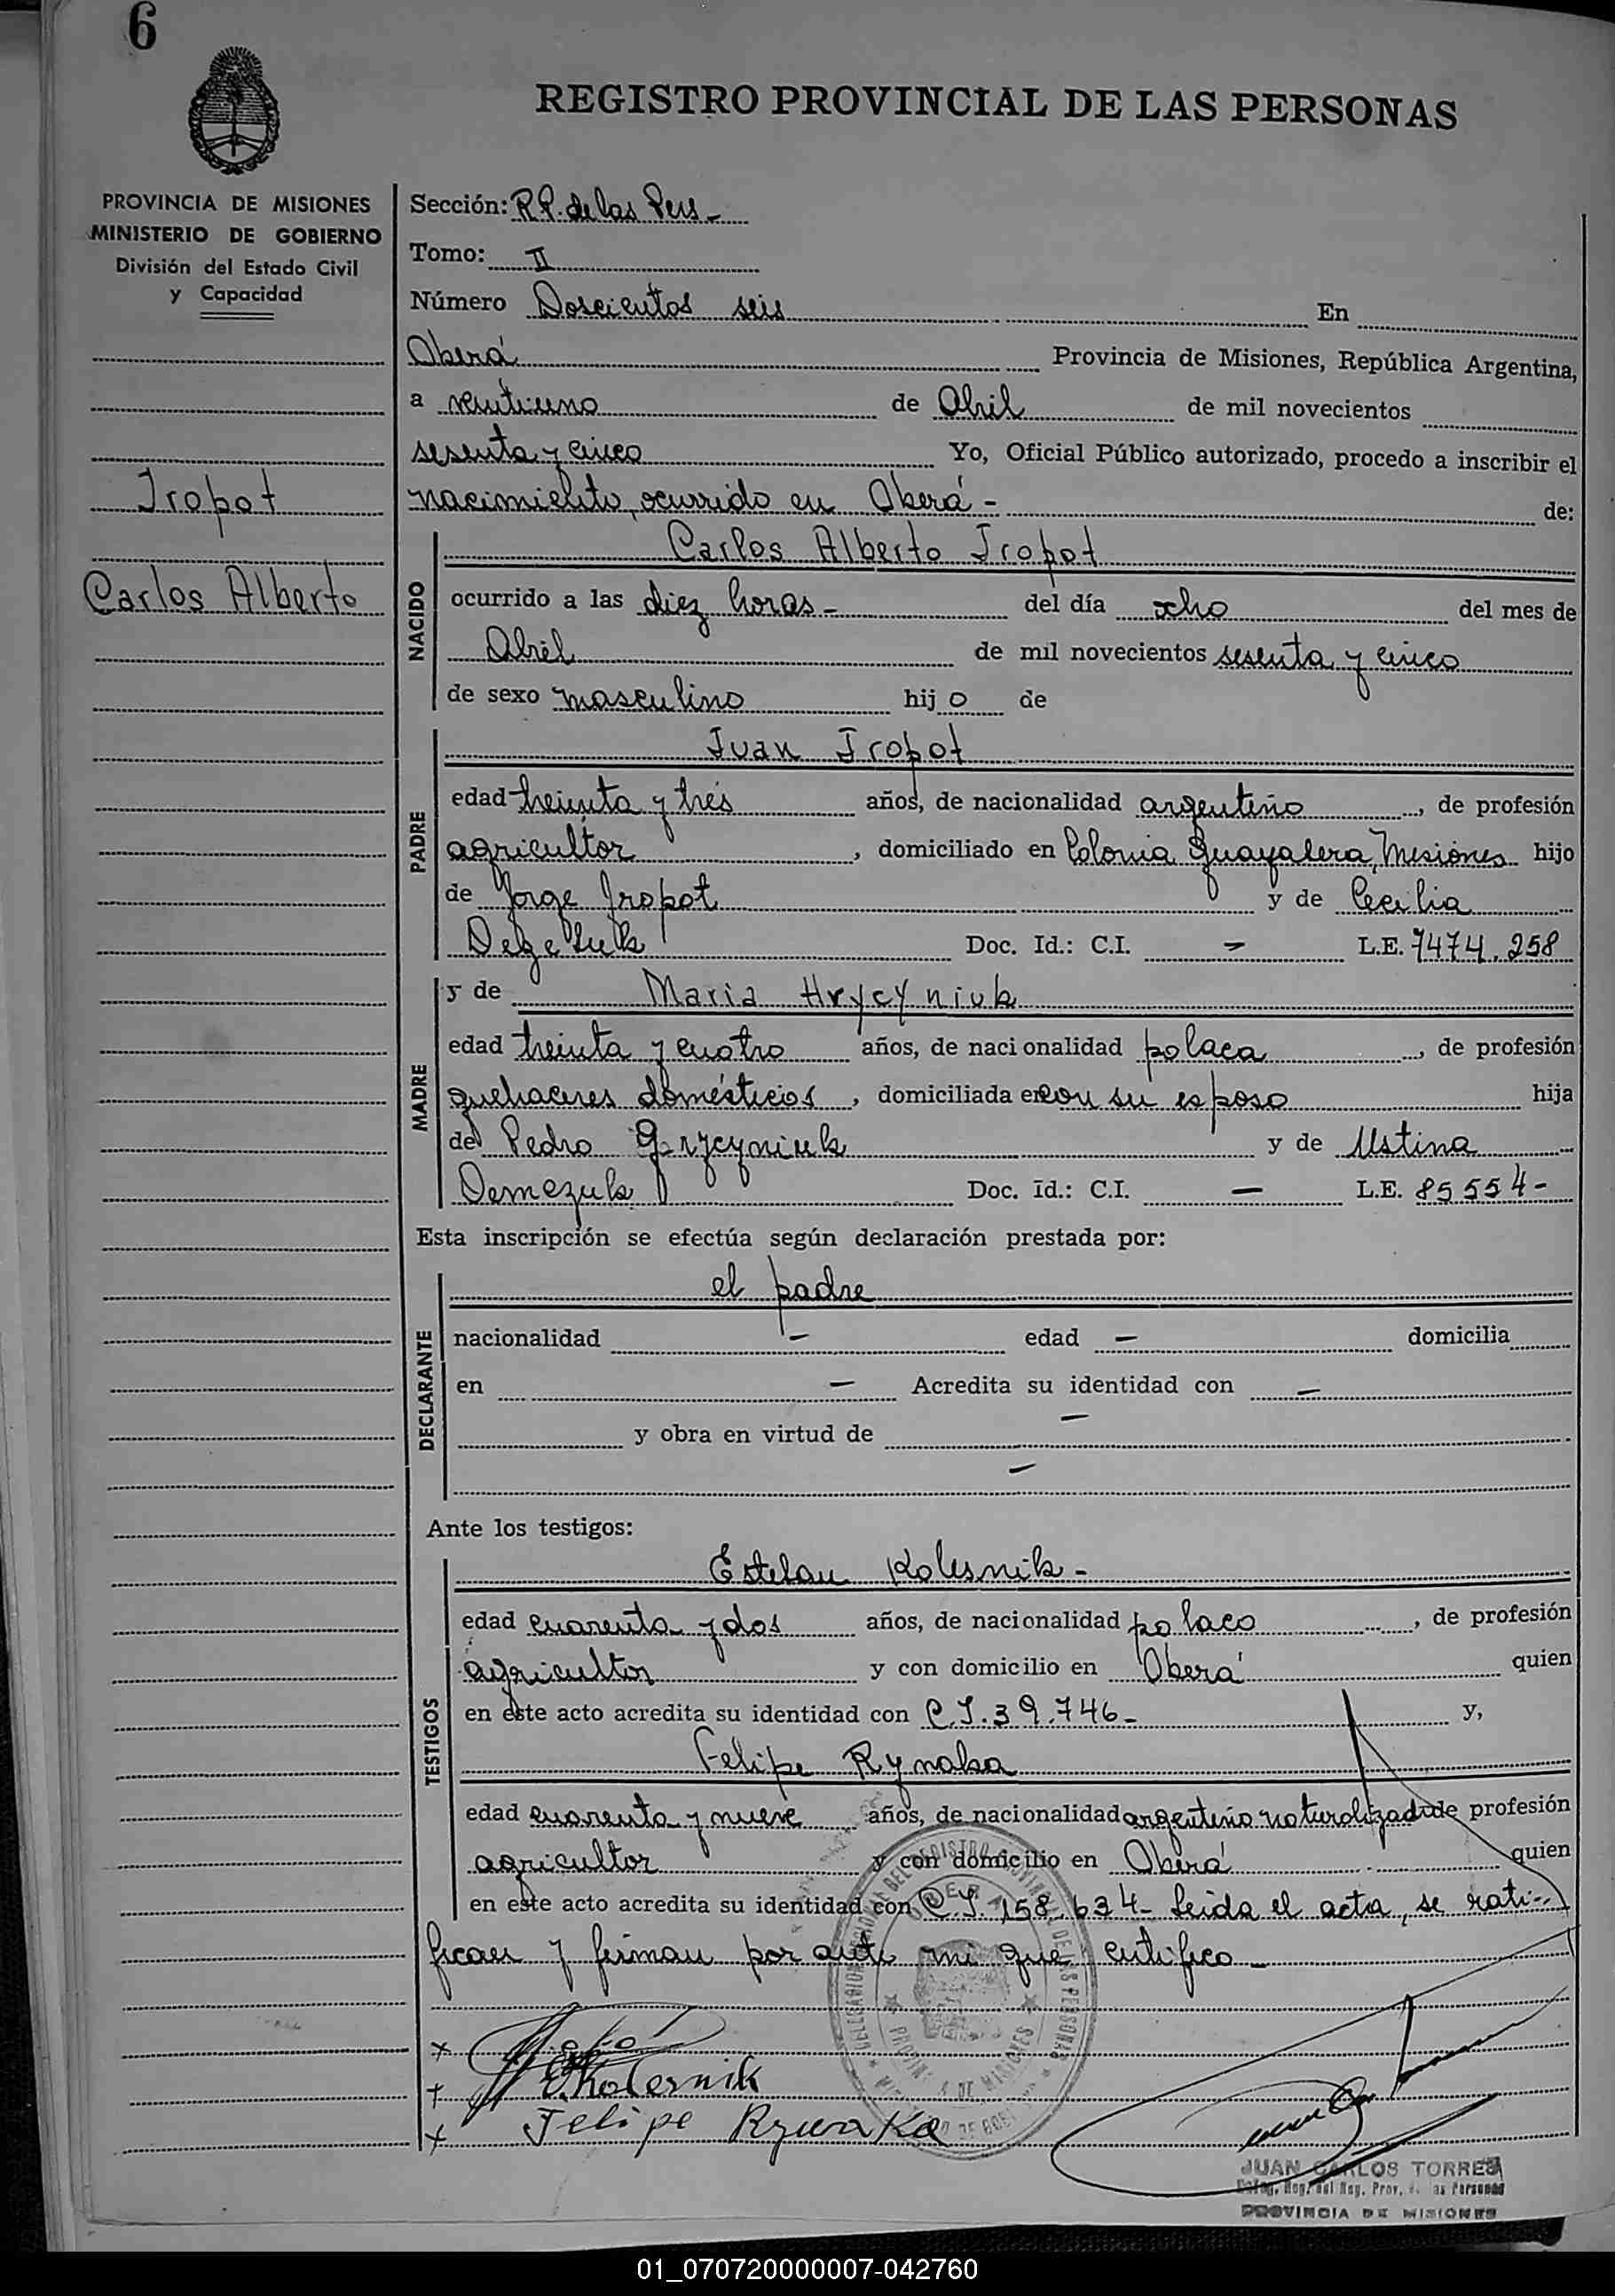 6
REGISTRO PROVINCIAL DE LAS PERSONAS
PROVINCIA DE MISIONES
MINISTERIO DE GOBIERNO
División del Estado Civil
y Capacidad
Sección: R.P. de las Pers -
Tomo: II
Número Doscientos seis En
Oberá Provincia de Misiones, República Argentina,
a veintiuno de Abril de mil novecientos
sesenta y cinco Yo, Oficial Público autorizado, procedo a inscribir el
nacimiento, ocurrido en Oberá - de:
Tropot
Carlos Alberto
NACIDO
Carlos Alberto Tropot
ocurrido a las diez horas - del día ocho del mes de
Abril de mil novecientos sesenta y cinco
de sexo masculino hijo de
PADRE
Juan Tropot
edad treinta y tres años, de nacionalidad argentino, de profesión
agricultor, domiciliado en Colonia Guayalera, Misiones hijo
de Jorge Tropot y de Cecilia
Doc. Id.: C.I. - L.E. 7474.258
MADRE
y de Maria Hrycyniuk
edad treinta y cuatro años, de nacionalidad polaca, de profesión
quehaceres domésticos, domiciliada en con su esposo hija
de Pedro y de Ustina
Demezuk Doc. Id.: C.I. - L.E. 85554-
Esta inscripción se efectúa según declaración prestada por:
DECLARANTE
el padre
nacionalidad - edad - domicilia
en - Acredita su identidad con -
y obra en virtud de -
-
Ante los testigos:
TESTIGOS
Esteban Kolesnik -
edad cuarenta y dos años, de nacionalidad polaco, de profesión
agricultor y con domicilio en Oberá quien
en este acto acredita su identidad con C.I. 39.746- y,
Felipe Rynaka
edad cuarenta y nueve años, de nacionalidad argentino naturalizado de profesión
agricultor y con domicilio en Oberá quien
en este acto acredita su identidad con C.I. 158.634- Leida el acta, se rati-
fican y firman por ante mi que certifico -
x
+ E. Kolesnik
x Felipe Rywaka
JUAN CARLOS TORRES
PROVINCIA DE MISIONES
01_070720000007-042760